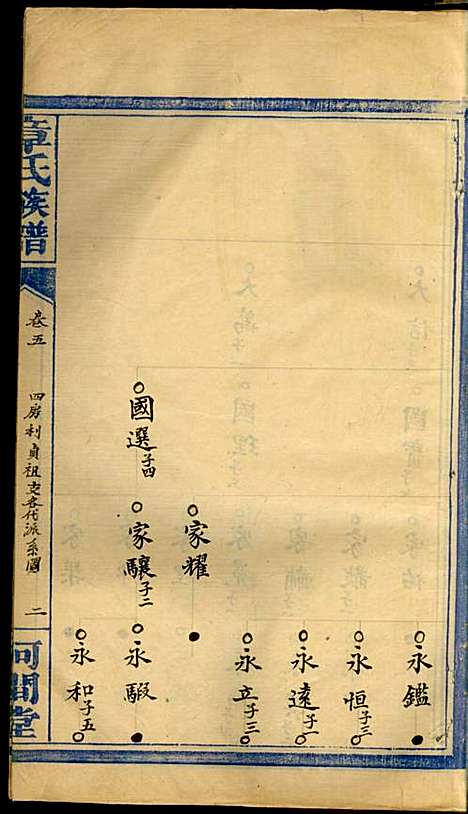 永鑑
永恒子三
永遠子一
永立子三
家耀
國選子四
家驤子二
永騢
永和子五
章氏族譜
卷五
四房利貞祖支各代派系圖
二
河間堂